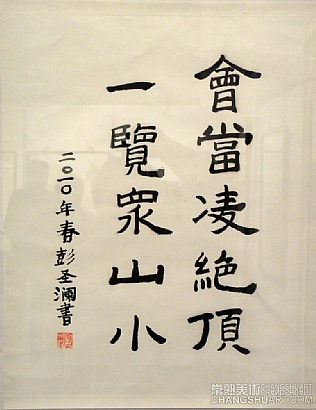 會當凌絕頂
一覽眾山小
二〇一〇年春彭圣澜書
常熟美術
CHANGSHUART.COM